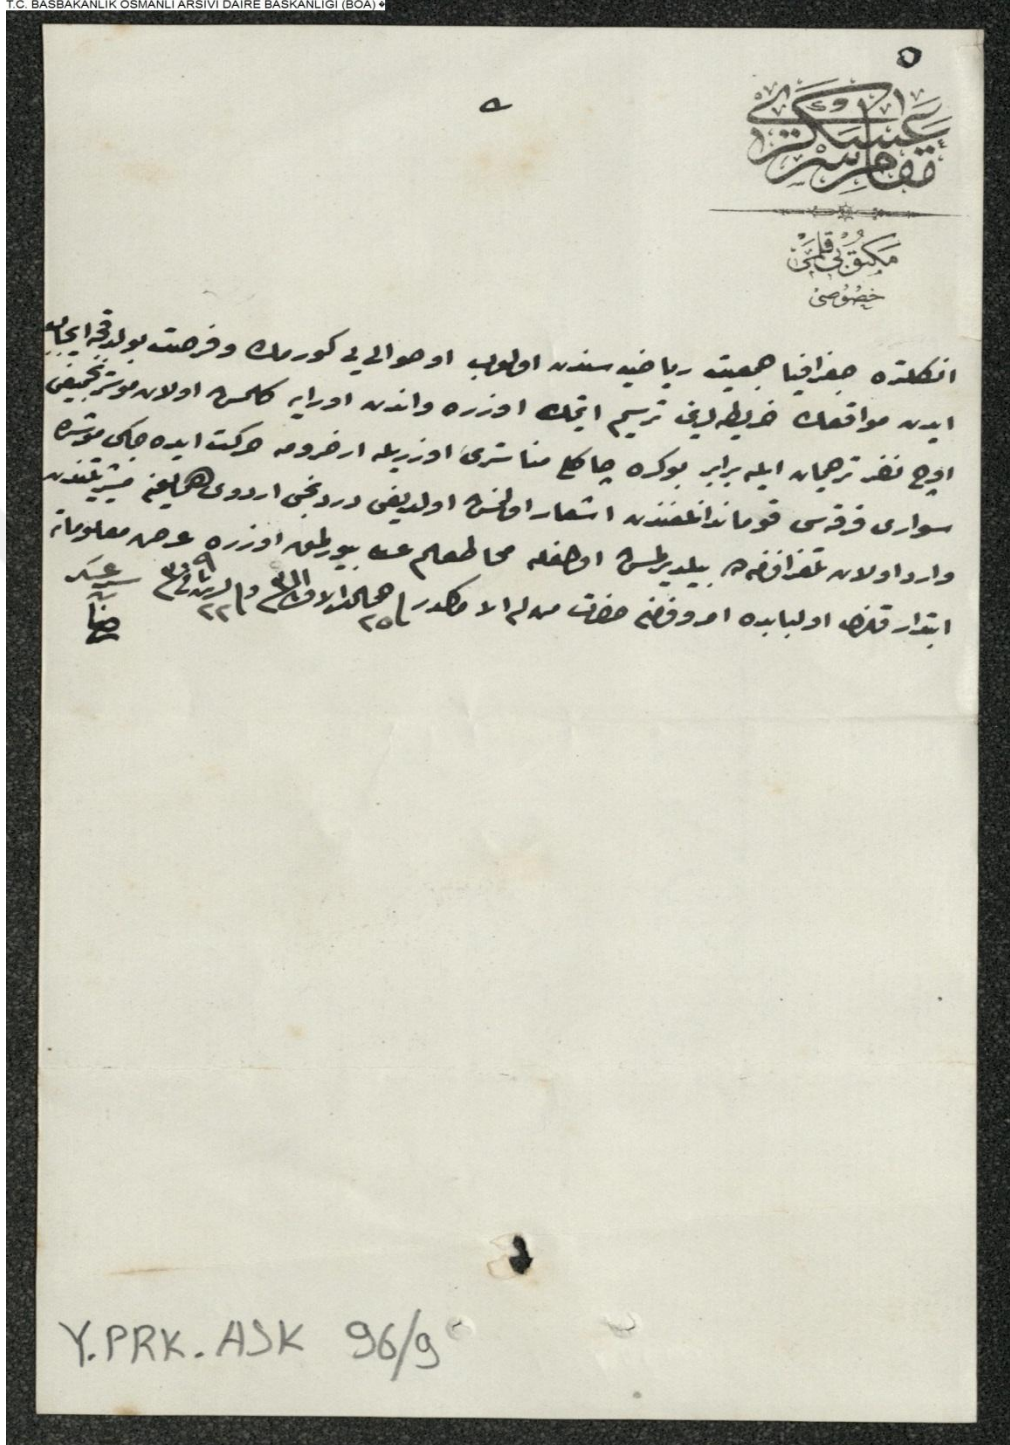 T.C. BAŞBAKANLIK OSMANLI ARŞİVİ DAİRE BAŞKANLIĞI (BOA)
مقام سر عسکری
مکتوبی قلمی
خصوصی
انکلتره جغرافیا جمعیت ریاضیه سندن اولوب او حوالی یی کورمك و فرصت بولدقجه ایجاب
ایدن مواقعك خریطه لرینی ترسیم ایتمك اوزره واندن اورایه کلمش اولان
اوچ نفر ترجمان ایله برابر بوکره مناستری اوزریله ارضرومه حرکت ایده جکی
سواری فرقه سی قوماندانلغندن اشعار اولنمش اولدیغی دردنجی اردوی همایون مشیریتندن
وارد اولان تلغرافنامه ده بیلدیرلمش اولمغله محاط علم عالی بیورلمق اوزره عرض معلوماته
ابتدار قلندی اولبابده امر و فرمان حضرت من له الامرکدر
سر عسکر
رضا
Y.PRK.ASK 96/9